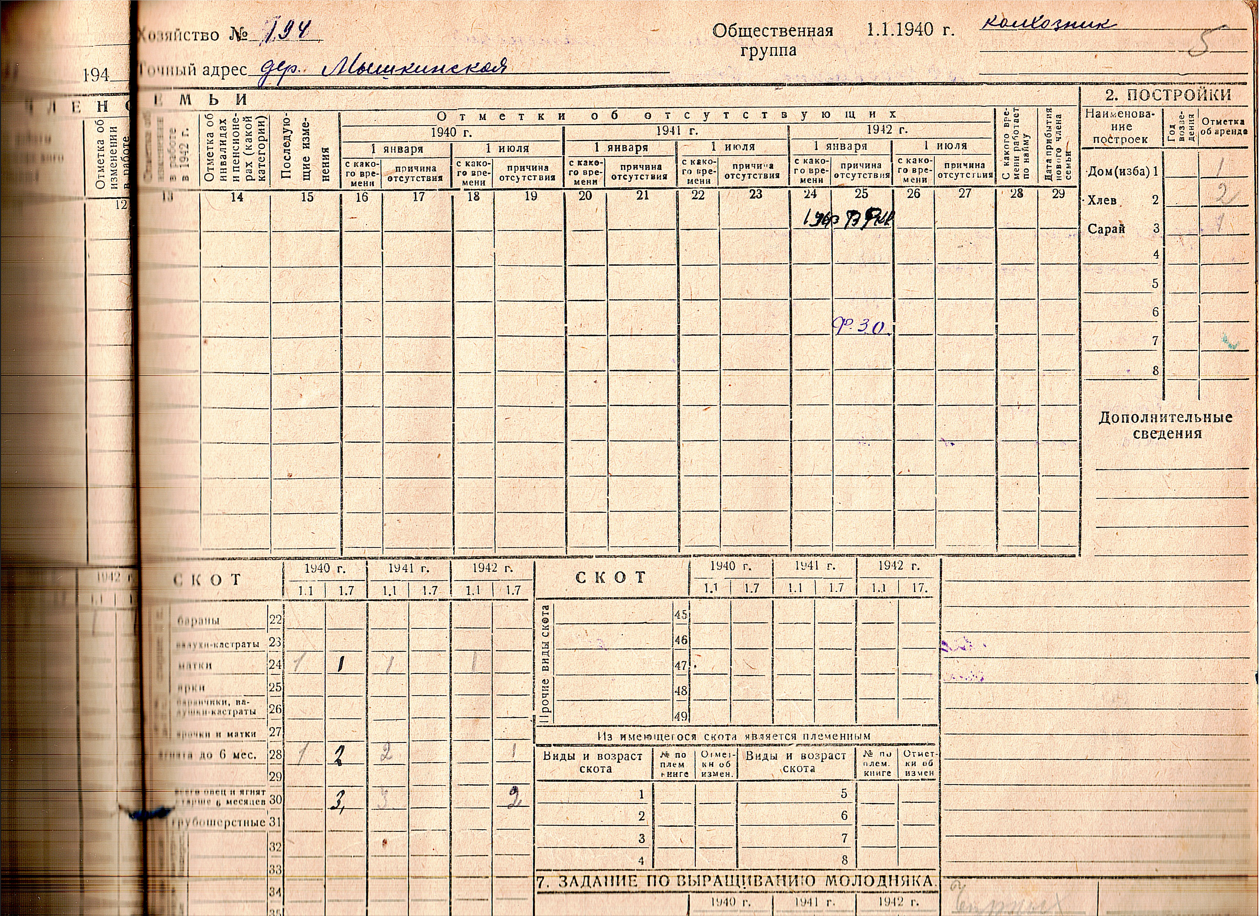 Хозяйство № 194
Общественная группа 1.1.1940 г. колхозник
5
194
Точный адрес дер. Мышкинская
ЛЕНО
ЕМЬИ
2. ПОСТРОЙКИ
Отметка об изменении в работе
в работе в 1942 г.
Отметка об инвалидах и пенсионерах (какой категории)
Последующие изменения
Отметки об отсутствующих
1940 г. 1941 г. 1942 г.
1 января 1 июля 1 января 1 июля 1 января 1 июля
с какого времени причина отсутствия с какого времени причина отсутствия с какого времени причина отсутствия с какого времени причина отсутствия с какого времени причина отсутствия с какого времени причина отсутствия
С какого времени работает по найму
Дата прибытия нового члена семьи
Наименование построек Год возведения Отметка об аренде
12 13 14 15 16 17 18 19 20 21 22 23 24 25 26 27 28 29
Дом(изба) 1 1
Хлев 2 2
Сарай 3 1
4
5
6
7
8
Дополнительные сведения
СКОТ 1940 г. 1941 г. 1942 г.
1.1 1.7 1.1 1.7 1.1 1.7
бараны 22
валухи-кастраты 23
матки 24 1 1 1 1
ярки 25
баранчики, валушки-кастраты 26
ярочки и матки 27
ягнята до 6 мес. 28 1 2 2 1
29
всего овец и ягнят старше 6 месяцев 30 3 3 2
грубошерстные 31
32
33
34
35
1942 г.
1.1
СКОТ 1940 г. 1941 г. 1942 г.
1.1 1.7 1.1 1.7 1.1 17.
Прочие виды скота
45
46
47
48
49
Из имеющегося скота является племенным
Виды и возраст скота № по плем книге Отметки об измен. Виды и возраст скота № по плем. книге Отметки об измен
1 5
2 6
3 7
4 8
7. ЗАДАНИЕ ПО ВЫРАЩИВАНИЮ МОЛОДНЯКА.
1940 г. 1941 г. 1942 г.